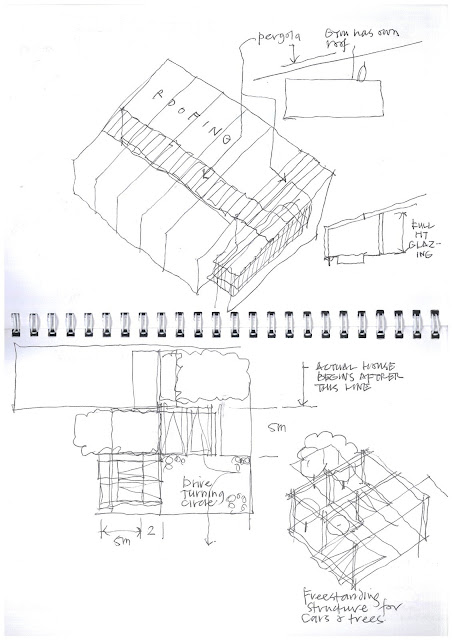 pergola
Gym has own
roof
ROOFING
FULL
HT
GLAZ-
ING
ACTUAL HOUSE
BEGINS AFTER
THIS LINE
5m
Drive
Turning
Circle
5m
2
Freestanding
Structure for
Cars & trees